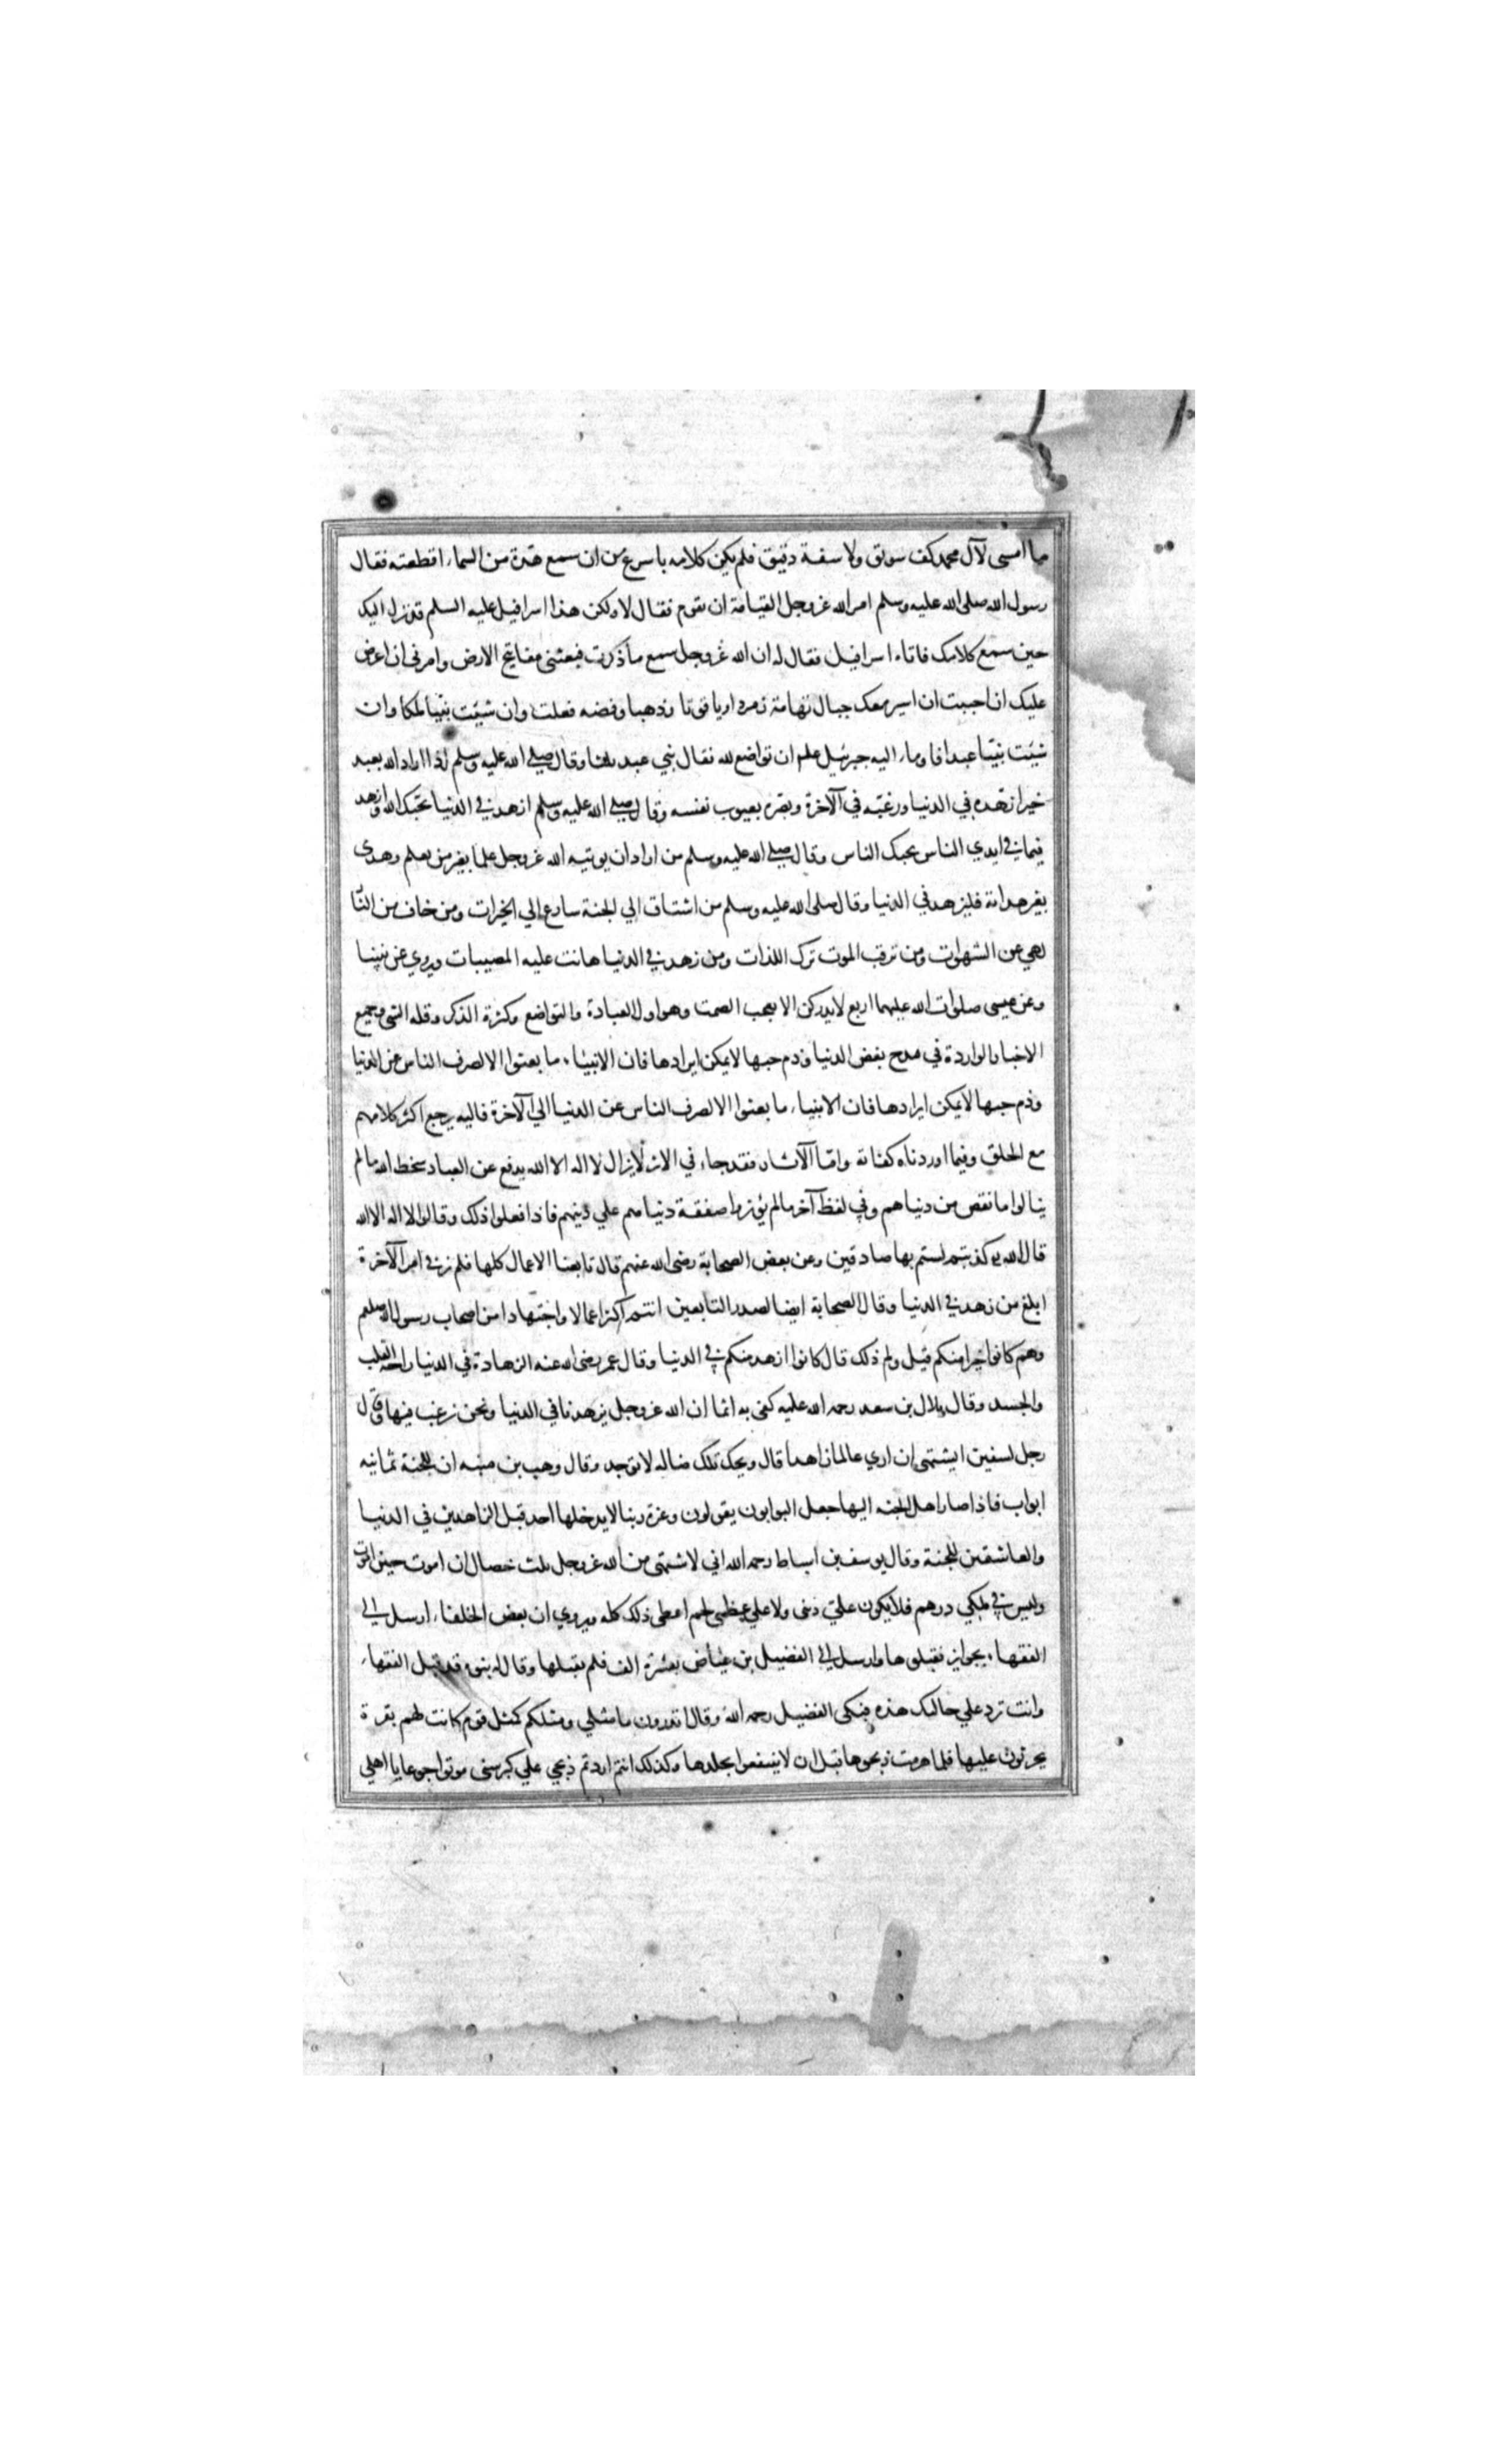 ما امسى لآل محمد كف سويق ولا سفة دقيق فلم يكن كلامه باسرع من ان سمع هدة من السماء اقطعته فقال
رسول الله صلى الله عليه وسلم امر الله عز وجل القيامة ان تقوم فقال لا ولكن هذا اسرافيل عليه السلم قد نزل اليك
حين سمع كلامك فاتاه اسرافيل فقال له ان الله عز وجل سمع ما ذكرت فبعثني مفاتيح الارض وامرني ان اعرض
عليك ان احببت ان اسير معك جبال تهامة زمردا وياقوتا وذهبا وفضه فعلت وان شيئت نبيا ملكا وان
شيئت نبيا عبدا فاوماء اليه جبرئيل علم ان تواضع لله فقال نبي عبد ثلثا وقال صلى الله عليه وسلم اذا اراد الله بعبد
خيرا زهده في الدنيا ورغبه في الآخرة وبصره بعيوب نفسه وقال صلى الله عليه وسلم ازهد في الدنيا يحبك الله وازهد
فيما في ايدي الناس يحبك الناس وقال صلى الله عليه وسلم من اراد ان يوتيه الله عز وجل علما بغير من يعلم وهدى
بغير هداية فليزهد في الدنيا وقال صلى الله عليه وسلم من اشتاق الي الجنة سارع الي الخيرات ومن خاف من النا
لهي عن الشهوات ومن ترقب الموت ترك اللذات ومن زهد في الدنيا هانت عليه المصيبات ويروي عن نبينا
وعن عيسى صلوات الله عليهما اربع لا يدركن الا بعجب الصمت وهو اول العبادة والتواضع وكثرة الذكر وقله الشي وجميع
الاخبار الواردة في مدح بغض الدنيا وذم حبها لا يمكن ايرادها فان الانبئاء ما بعثوا الا لصرف الناس عن الدنيا
وذم حبها لا يمكن ايرادها فان الانبياء ما بعثوا الا لصرف الناس عن الدنيا الي الآخرة فاليه يرجع اكثر كلامهم
مع الخلق وفيما اوردناه كفاية واما الآثار فقد جاء في الاثر لا يزال لا اله الا الله يدفع عن العباد سخط الله ما لم
ينالوا ما نقص من دنياهم وفي لفظ آخر ما لم يؤثروا صفقة دنياهم علي دينهم فاذا فعلوا ذلك وقالوا لا اله الا الله
قال الله كذبتم لستم بها صادقين وعن بعض الصحابة رضى الله عنهم قال تابعنا الاعمال كلها فلم نر في امر الآخرة
ابلغ من زهد في الدنيا وقال الصحابة ايضا لصدر التابعين انتم اكثر اعمالا واجتهادا من اصحاب رسول الله صلعم
وهم كانوا خيرا منكم قيل ولم ذلك قال كانوا ازهد منكم في الدنيا وقال عمر رضى الله عنه الزهادة في الدنيا راحة القلب
والجسد وقال بلال بن سعد رحمه الله عليه كفى به اثما ان الله عز وجل يزهدنا في الدنيا ونحن نرغب فيها وقال
رجل لسفين ايشتهي ان اري عالما زاهدا قال ويحك تلك ضاله لا توجد وقال وهب بن منبه ان للجنة ثمانيه
ابواب فاذا صار اهل الجنه اليها جعل البوابون يقولون وعزة ربنا لا يدخلها احد قبل الزاهدين في الدنيا
والعاشقين للجنة وقال يوسف بن اسباط رحمه الله اني لاشتهى من الله عز وجل ثلث خصال ان اموت حين اموت
وليس في ملكي درهم فلا يكون علي دين ولا علي عظمى لحم اعطى ذلك كله ويروي ان بعض الخلفاء ارسل الى
الفقهاء بجوايز فقبلوها وارسل الى الفضيل بن عياض بعشرة الف فلم يقبلها وقال له بنوه قد قبل الفقهاء
وانت ترد علي حالك هذه فبكى الفضيل رحمه الله وقال اتدرون ما مثلي ومثلكم كمثل قوم كانت لهم بقرة
يحرثون عليها فلما هرمت ذبحوها قبل ان لا ينتفعوا بجلدها وكذلك انتم اردتم ذبحي علي كبر سني موتوا جوعا يا اهلي